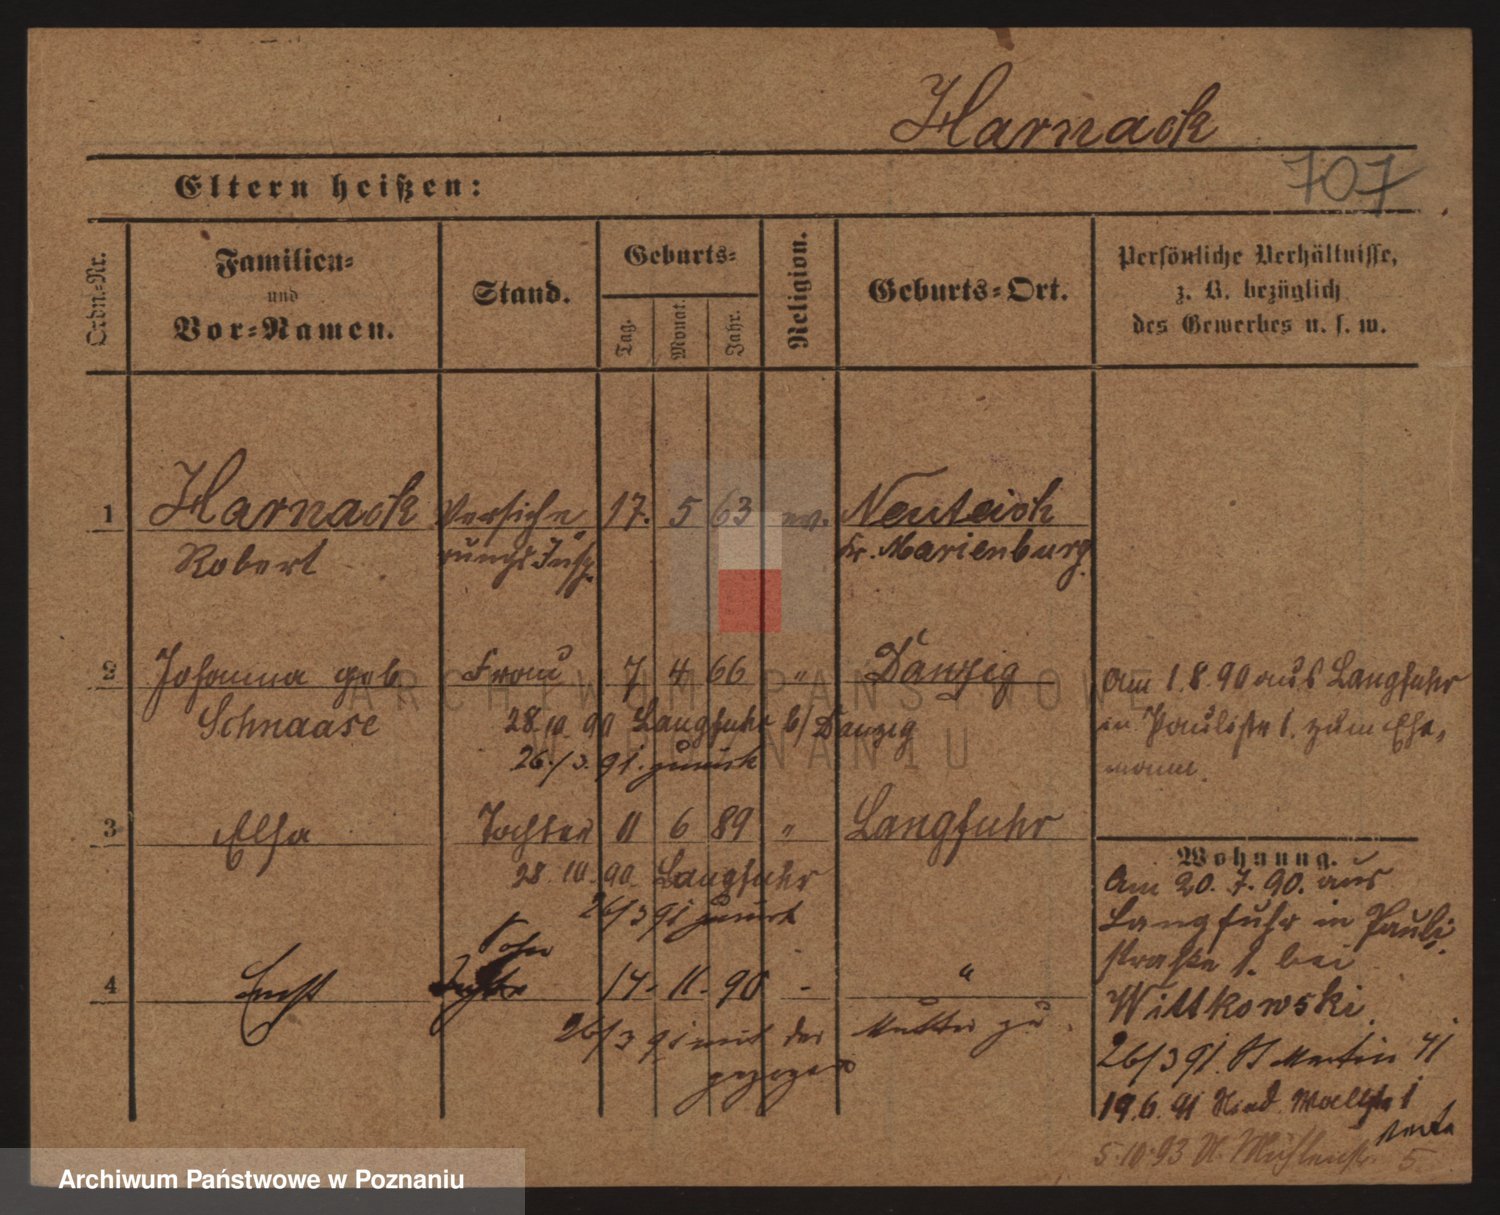 Harnack
707
Eltern heißen:
Ordn.-Nr.
Familien-
und
Vor-Namen.
Stand.
Geburts-
Tag.
Monat.
Jahr.
Religion.
Geburts-Ort.
Persönliche Verhältnisse,
z. B. bezüglich
des Gewerbes u. s. w.
1 Harnack Versiche 17. 5 63 ev. Neuteich
Robert rungs Insp. Kr. Marienburg.
2 Johanna geb Frau 7 4 66 " Danzig
Schnaase 28.10.90 Langfuhr b/ Danzig
26./3. 91. zurück
Am 1.8.90 aus Langfuhr
in Paulistr 1. zum Ehe-
manne.
3 Elsa Tochter 11 6 89 " Langfuhr
28.10.90. Langfuhr
26/3 91 zurück
Sohn
4 Ernst 14. 11. 90 - "
26/3 91 mit der Mutter zu
gezogen
Wohnung.
Am 20. 7. 90. aus
Langfuhr in Pauli-
straße 1. bei
Wittkowski.
26/3 91. St Martin 41
19.6.91 Nied. Wallstr 1
5.10.93 N. Mühlenstr. 5
ARCHIWUM PAŃSTWOWE
W POZNANIU
Archiwum Państwowe w Poznaniu